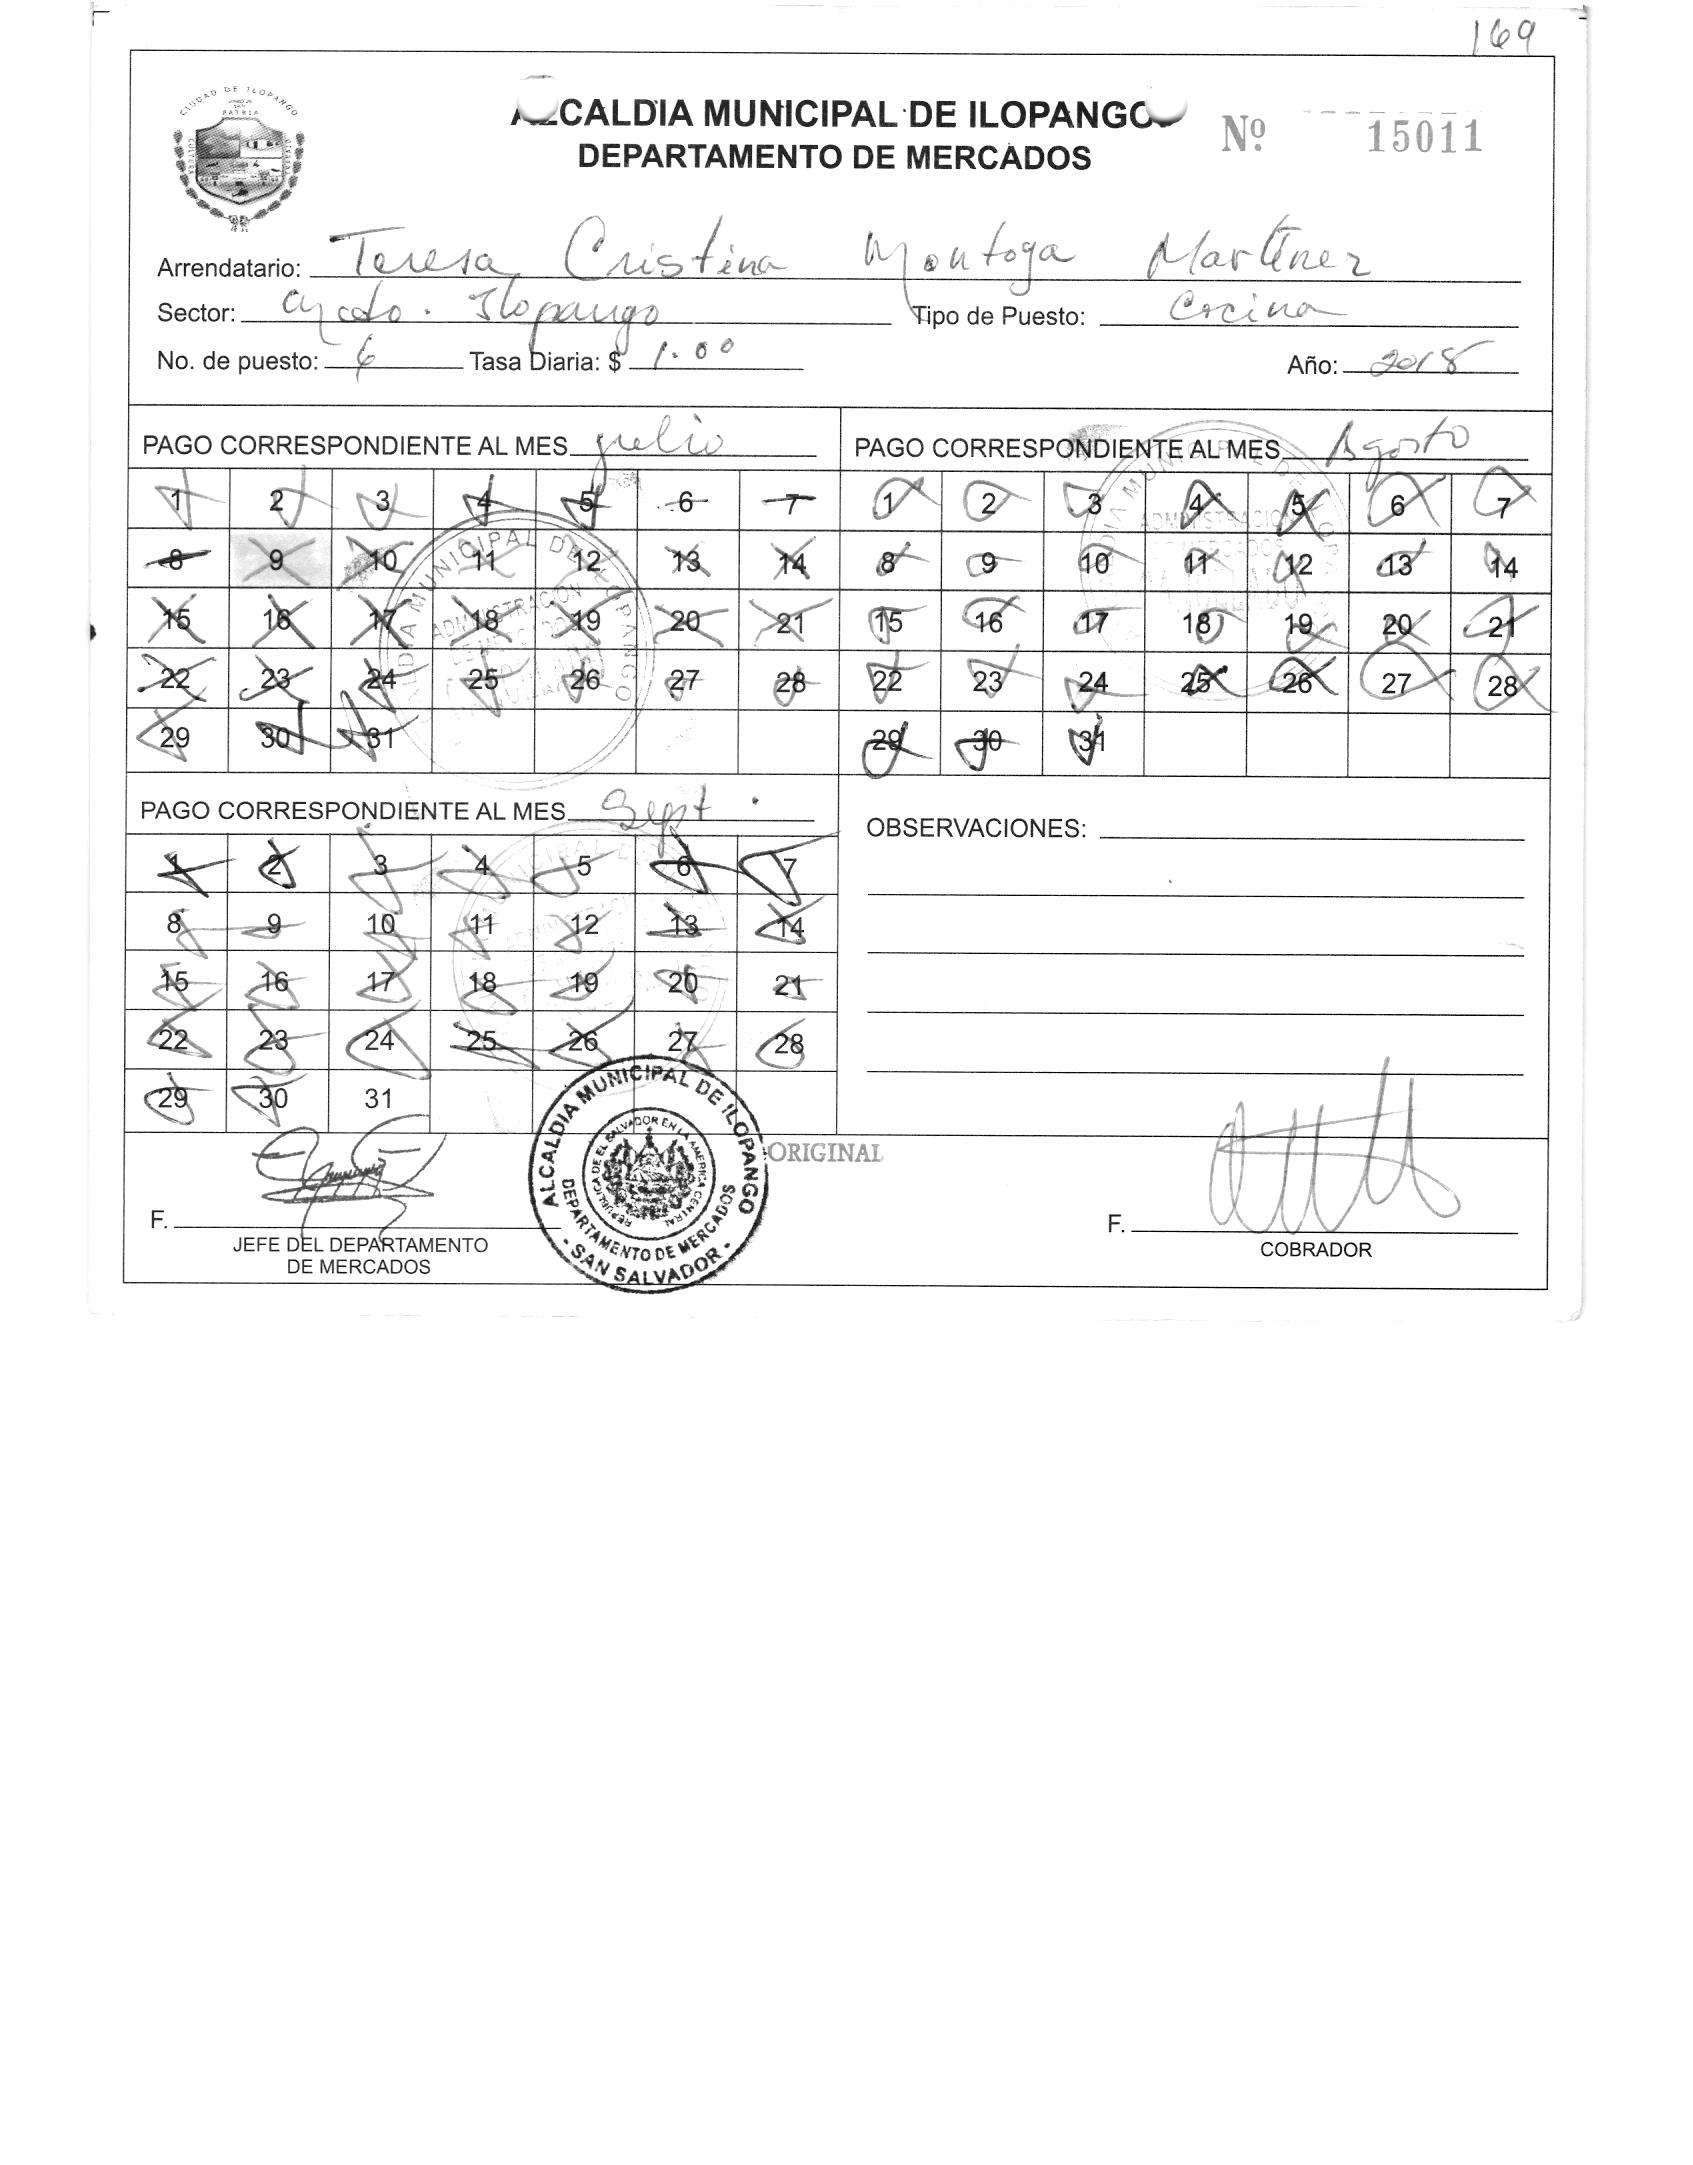 169
CIUDAD DE ILOPANGO
PATRIA
ALCALDIA MUNICIPAL DE ILOPANGO
DEPARTAMENTO DE MERCADOS
Nº 15011
Arrendatario: Teresa Cristina Montoya Martínez
Sector: Ilopango Tipo de Puesto: Cocina
No. de puesto: 6 Tasa Diaria: $ 1.00 Año: 2018
PAGO CORRESPONDIENTE AL MES julio
1 2 3 4 5 6 7
8 9 10 11 12 13 14
15 16 17 18 19 20 21
22 23 24 25 26 27 28
29 30 31
PAGO CORRESPONDIENTE AL MES Agosto
1 2 3 4 5 6 7
8 9 10 11 12 13 14
15 16 17 18 19 20 21
22 23 24 25 26 27 28
29 30 31
PAGO CORRESPONDIENTE AL MES Sept.
1 2 3 4 5 6 7
8 9 10 11 12 13 14
15 16 17 18 19 20 21
22 23 24 25 26 27 28
29 30 31
OBSERVACIONES:
ALCALDIA MUNICIPAL DE ILOPANGO
REPUBLICA DE EL SALVADOR EN LA AMERICA CENTRAL
DEPARTAMENTO DE MERCADOS
- SAN SALVADOR -
ORIGINAL
F.
JEFE DEL DEPARTAMENTO
DE MERCADOS
F.
COBRADOR